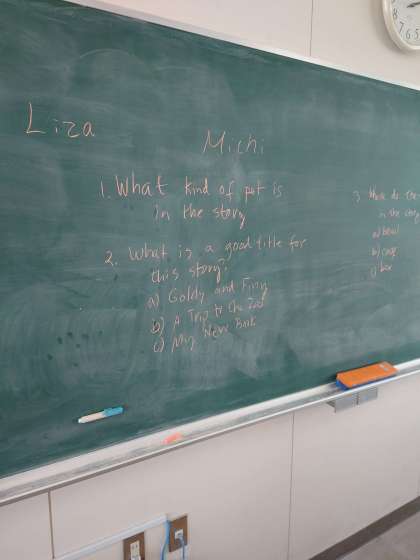 Liza
Michi
1. What kind of pet is
in the story
2. What is a good title for
this story?
a) Goldy and Finy
b) A Trip to the Zoo
c) My New
3. do the
in the story
a) bowl
b) cage
c) box
8
7 6 5